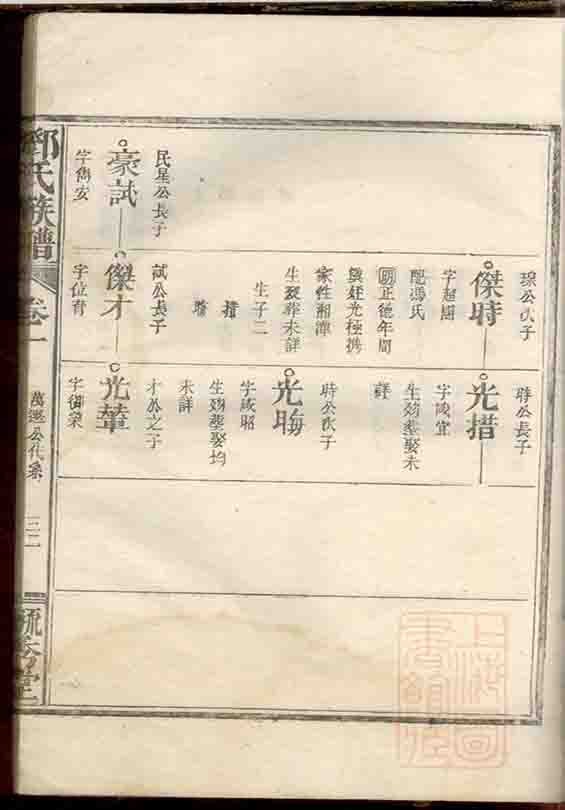 璟公次子
傑時
字超關
配馮氏
明正德年間
與姪光極携
家住湘潭
生歿葬未詳
生子二
措
晦
時公長子
光措
字咸宜
生歿葬娶未
詳
時公次子
光晦
字咸昭
生歿葬娶均
未詳
民星公長子
豪試
字儁安
試公長子
傑才
字位育
才公之子
光華
字御袞
鄧氏族譜
卷一
萬選公代系
三二
上海圖書館藏